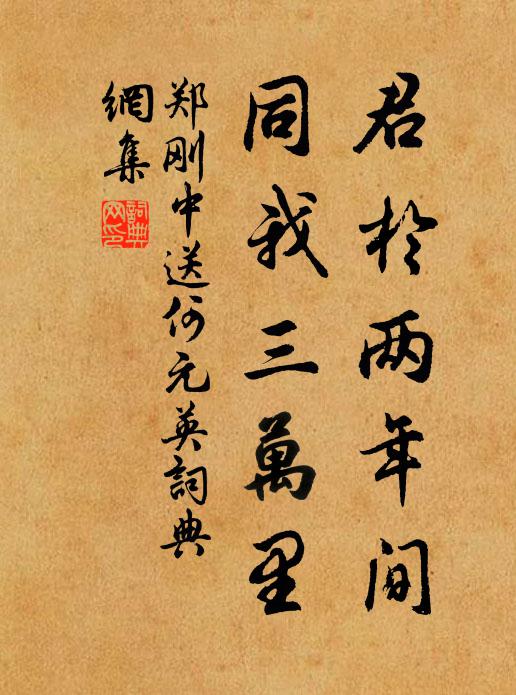 君於两年间
同我三萬里
郑刚中送何元英詞典
網集
詞典网印